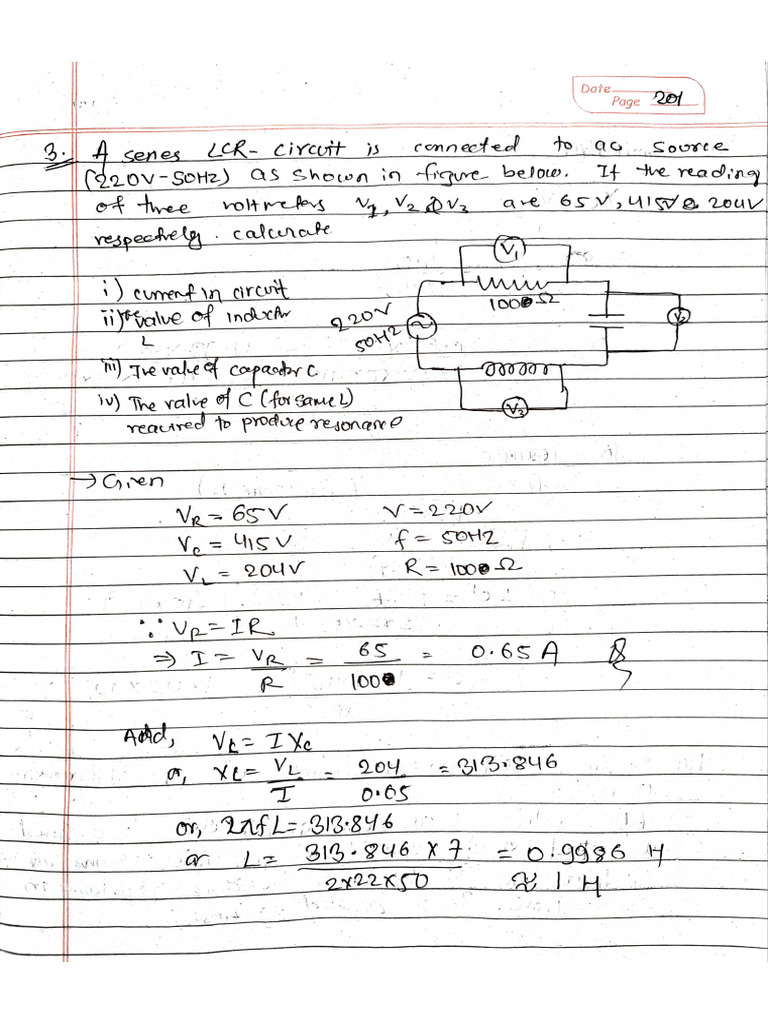 Date
Page 201
3. A series LCR- circuit is connected to ac source
(220V-50Hz) as shown in figure below. If the reading
of three voltmeters V1, V2 & V3 are 65V, 415V & 204V
respectively. calculate
i) current in circuit
ii) value of inductor
L
iii) The value of capacitor C.
iv) The value of C (for same L)
required to produce resonance
V1
100Ω
220V
50Hz
V2
V3
→ Given
VR = 65V V = 220V
Vc = 415V f = 50Hz
VL = 204V R = 100Ω
∵ VR = IR
⇒ I = VR/R = 65/100 = 0.65 A
And, VL = I Xc
or, XL = VL/I = 204/0.65 = 313.846
or, 2πfL = 313.846
or L = 313.846 × 7 / 2×22×50 = 0.9986 H
≈ 1 H